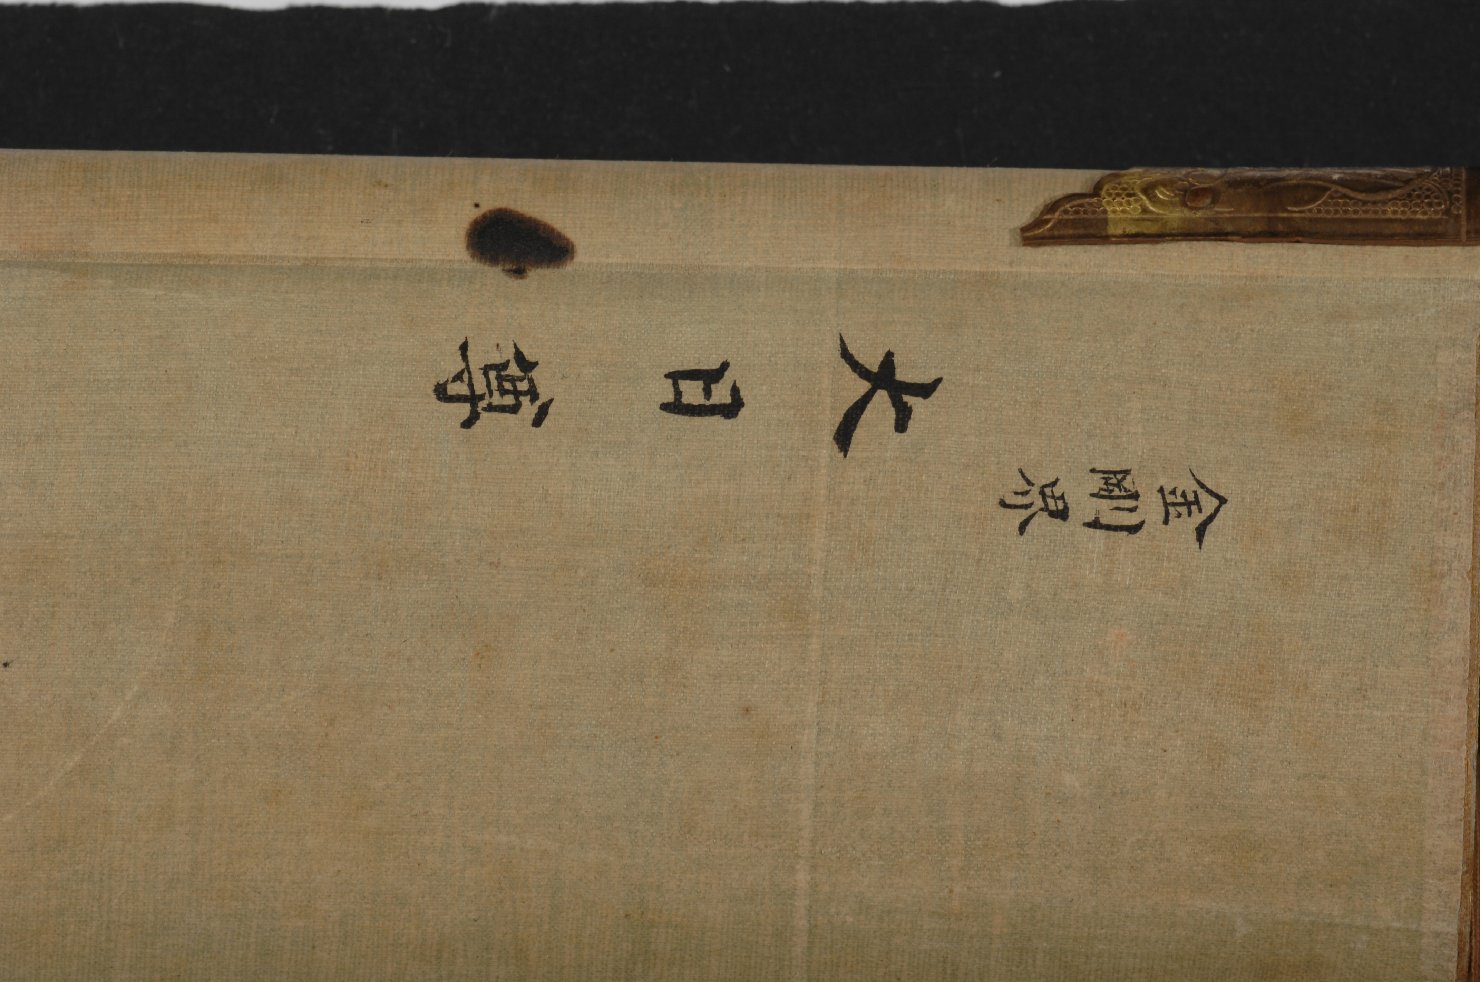 金剛界
大日尊